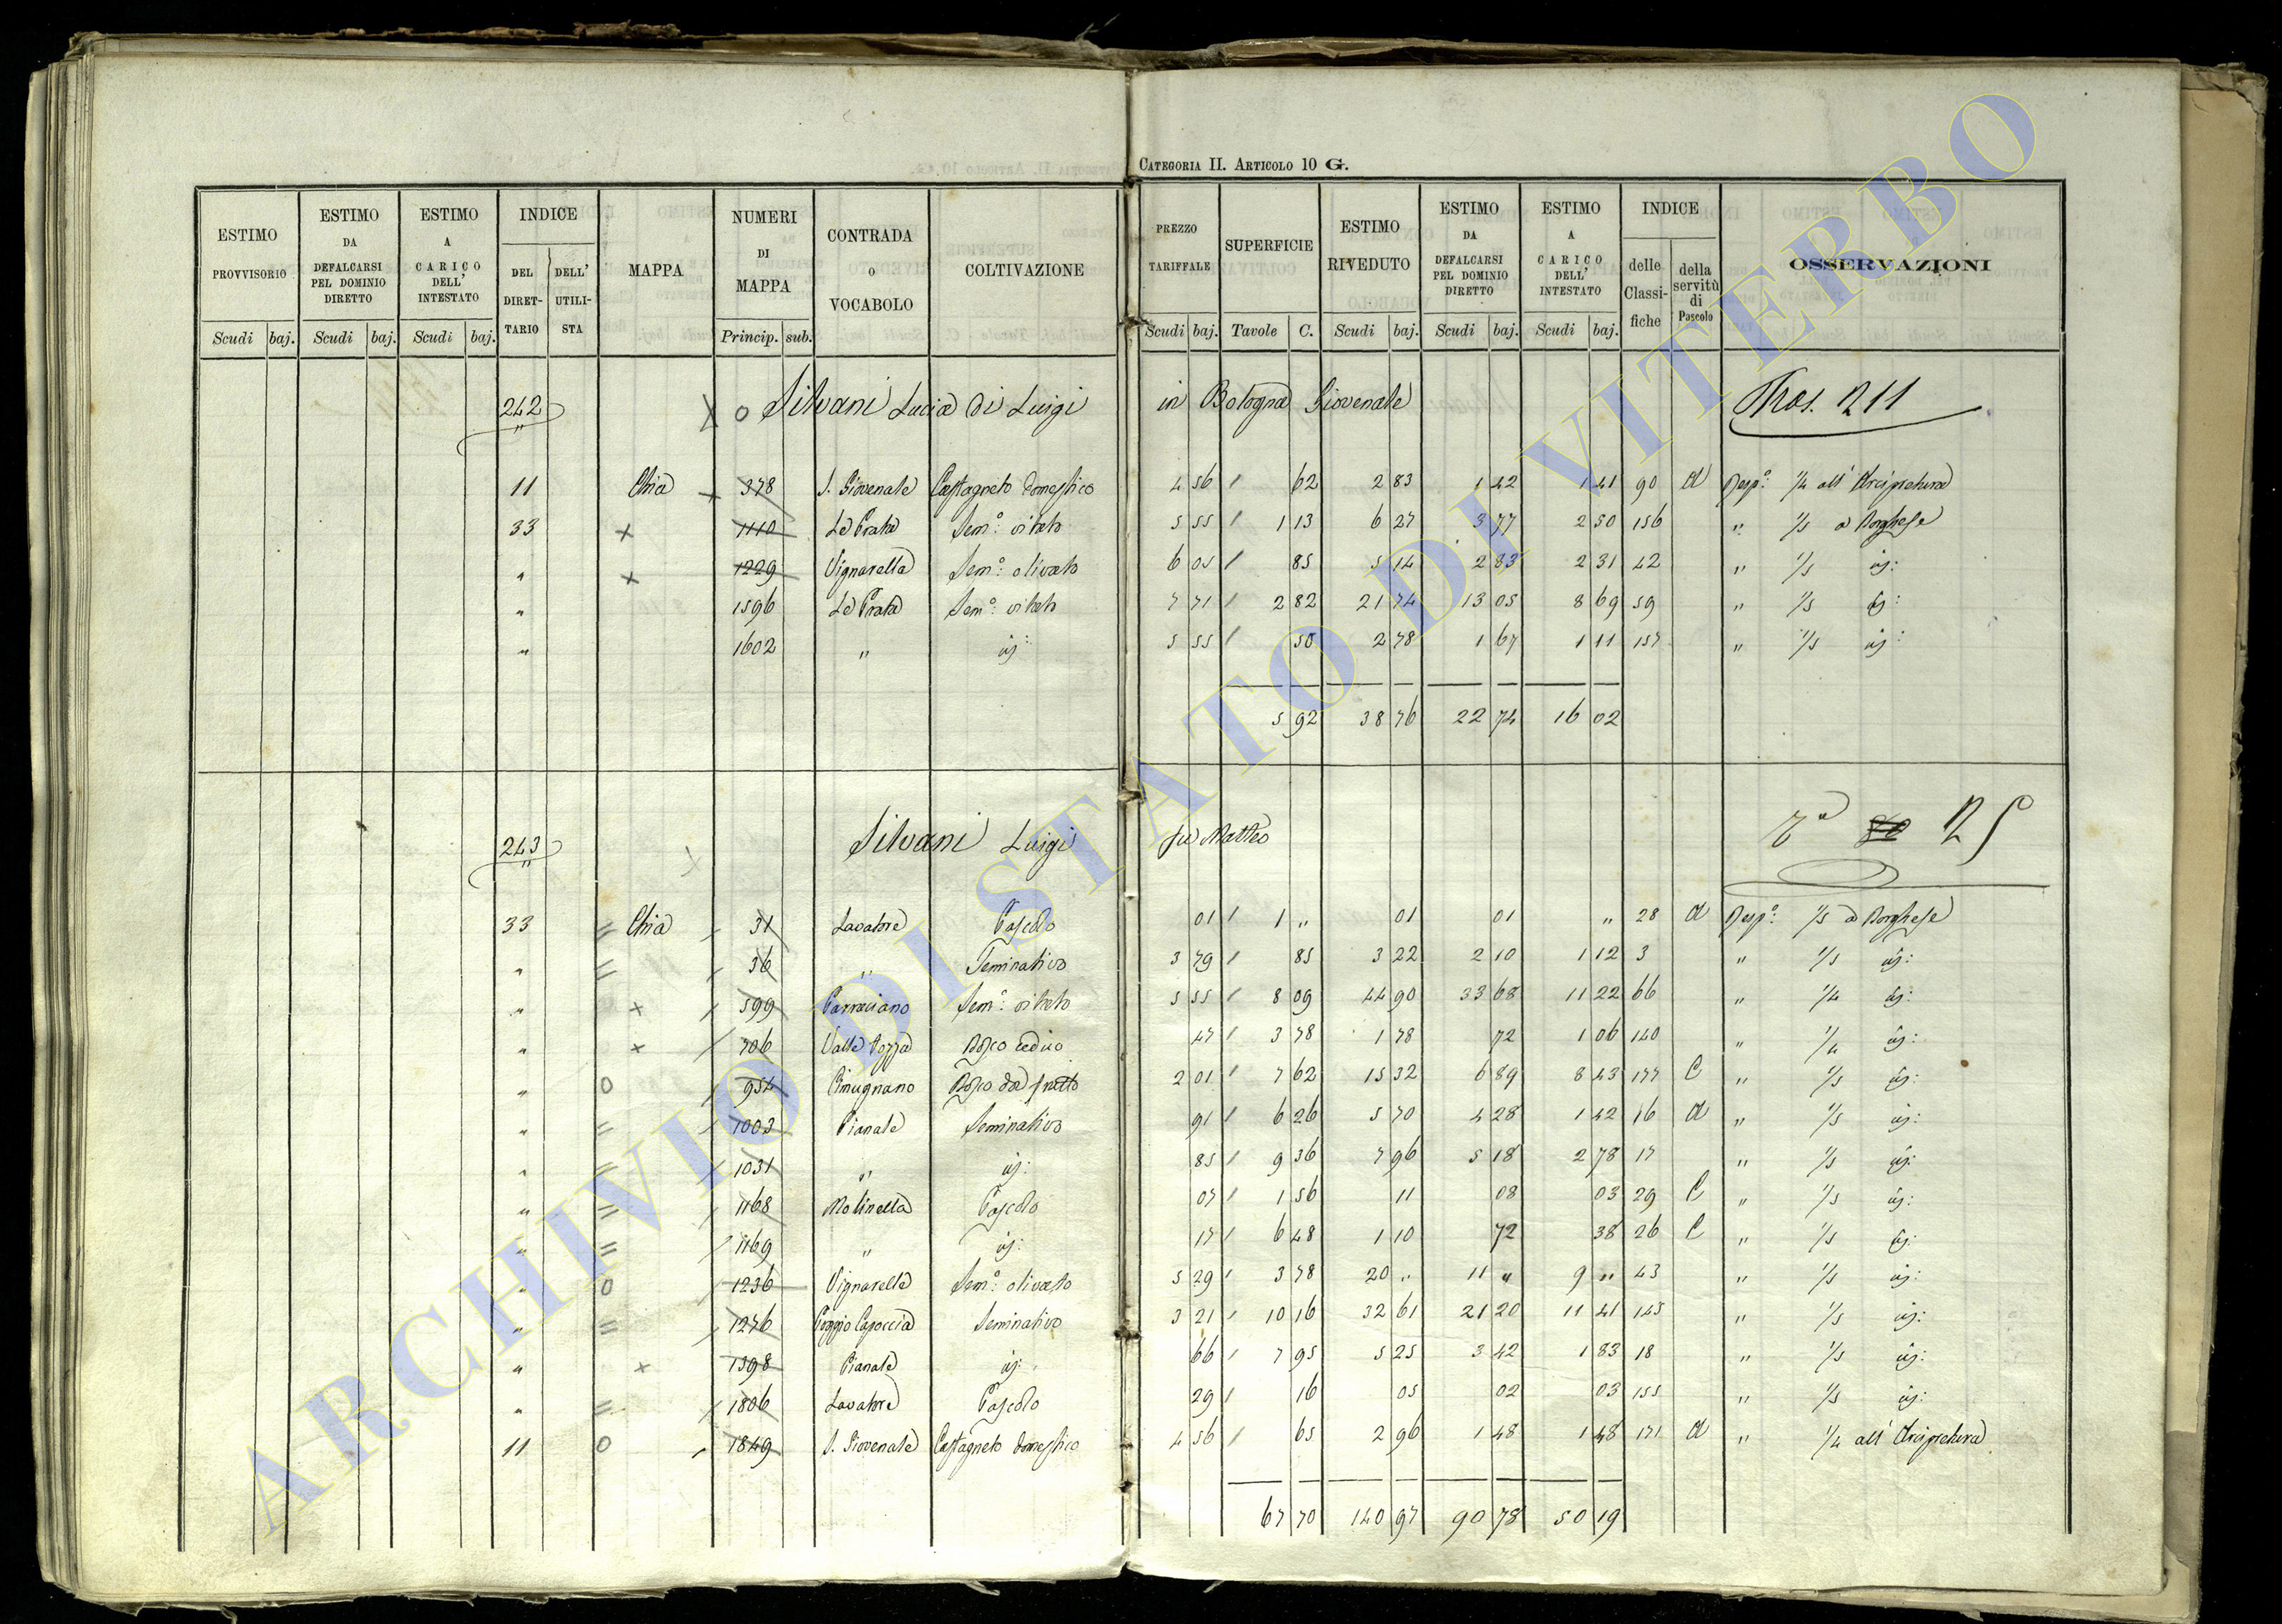 CATEGORIA II. ARTICOLO 10 G.
ESTIMO PROVVISORIO Scudi baj.
ESTIMO DA DEFALCARSI PEL DOMINIO DIRETTO Scudi baj.
ESTIMO A CARICO DELL' INTESTATO Scudi baj.
INDICE DEL DIRETTARIO DELL' UTILISTA
MAPPA
NUMERI DI MAPPA Princip. sub.
CONTRADA O VOCABOLO
COLTIVAZIONE
PREZZO TARIFFALE Scudi baj.
SUPERFICIE Tavole C.
ESTIMO RIVEDUTO Scudi baj.
ESTIMO DA DEFALCARSI PEL DOMINIO DIRETTO Scudi baj.
ESTIMO A CARICO DELL' INTESTATO Scudi baj.
INDICE delle Classifiche della servitù di Pascolo
OSSERVAZIONI
242 " X o Silvani Lucia di Luigi in Bologna Giovenale Tras. 211
11 Chia x 378 S. Giovenale Castagneto domestico 4 56 / 62 2 83 1 42 1 41 90 a Resp.e 1/4 all' Arcipretura
33 x 1110 Le Prata Sem.o vitato 5 55 / 1 13 6 27 3 77 2 50 156 " 1/5 a Borghese
" x 1229 Vignarella Sem.o olivato 6 05 / 85 5 14 2 83 2 31 42 " 1/5 id:
" 1596 Le Prata Sem.o vitato 7 71 / 2 82 21 74 13 05 8 69 59 " 1/5 id:
" 1602 " id: 5 55 / 50 2 78 1 67 1 11 157 " 1/5 id:
5 92 38 76 22 74 16 02
243 " Silvani Luigi fu Matteo 25
33 = Chia 31 Lavatore Pascolo 01 / 1 " 01 01 " 28 a Resp.e 1/5 a Borghese
" = 36 " Seminativo 3 79 / 85 3 22 2 10 1 12 3 " 1/5 id:
" x 599 Parraciano Sem.o vitato 5 55 / 8 09 44 90 33 68 11 22 66 " 1/4 id:
" x 706 Valle Pozza Bosco ceduo 47 / 3 78 1 78 72 1 06 140 " 1/4 id:
" o 954 Cimugnano Bosco da frutto 2 01 / 7 62 15 32 6 89 8 43 177 C " 1/5 id:
" = 1003 Pianale Seminativo 91 / 6 26 5 70 4 28 1 42 16 a " 1/5 id:
" = 1031 " id: 85 / 9 36 7 96 5 18 2 78 17 " 1/5 id:
" = 1168 Molinella Pascolo 07 / 1 56 11 08 03 29 C " 1/5 id:
" = 1169 " id: 17 / 6 48 1 10 72 38 26 C " 1/5 id:
" o 1236 Vignarella Sem.o olivato 5 29 / 3 78 20 " 11 " 9 " 43 " 1/5 id:
" = 1276 Poggio Capoccia Seminativo 3 21 / 10 16 32 61 21 20 11 41 145 " 1/5 id:
" x 1398 Pianale id: 66 / 7 95 5 25 3 42 1 83 18 " 1/5 id:
" = 1806 Lavatore Pascolo 29 / 16 05 02 03 155 " 1/5 id:
11 o 1849 S. Giovenale Castagneto domestico 4 56 / 65 2 96 1 48 1 48 171 a " 1/4 all' Arcipretura
67 70 140 97 90 78 50 19
ARCHIVIO DI STATO DI VITERBO